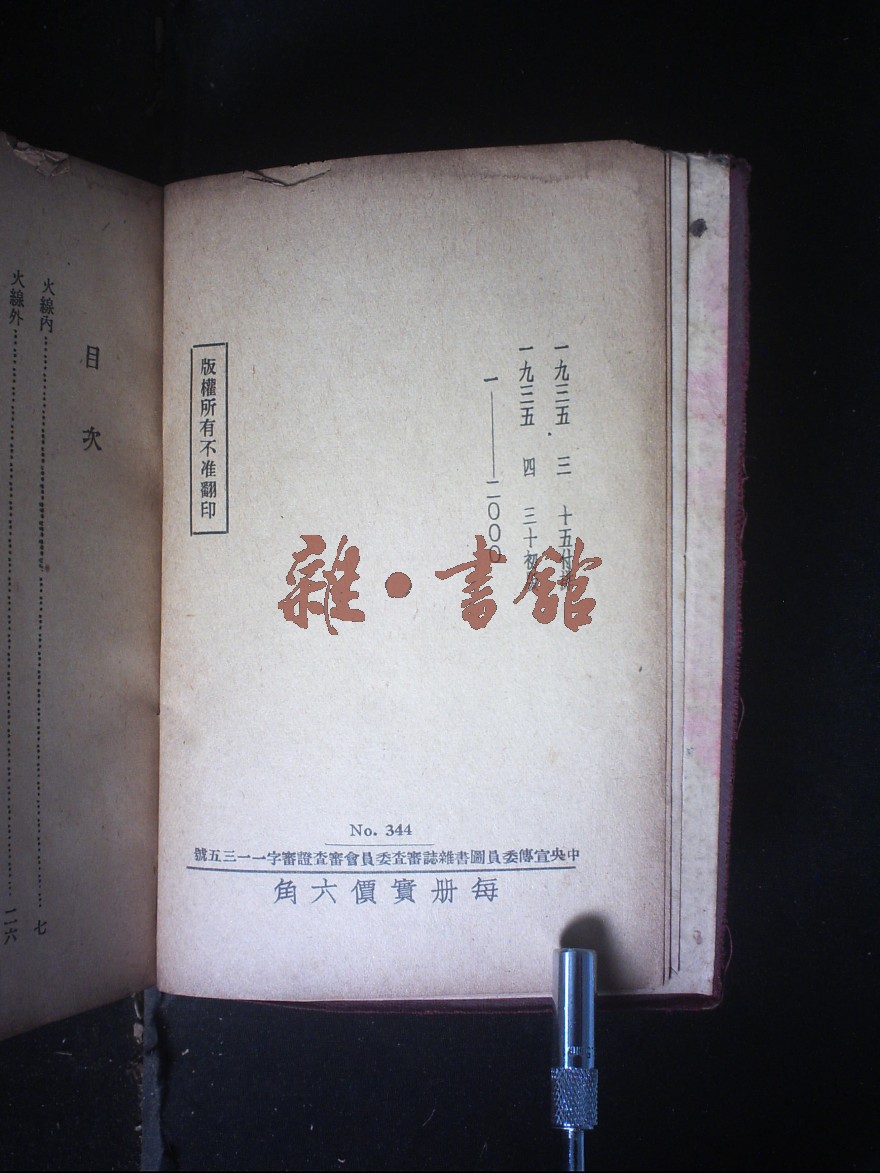 一九三五 三 十五付排
一九三五 四 三十初版
一——二〇〇〇
版權所有不准翻印
雜・書館
No. 344
中央宣傳委員圖書雜誌審查委員會審查證審字一一三五號
每冊實價六角
目次
火線內……七
火線外……二六